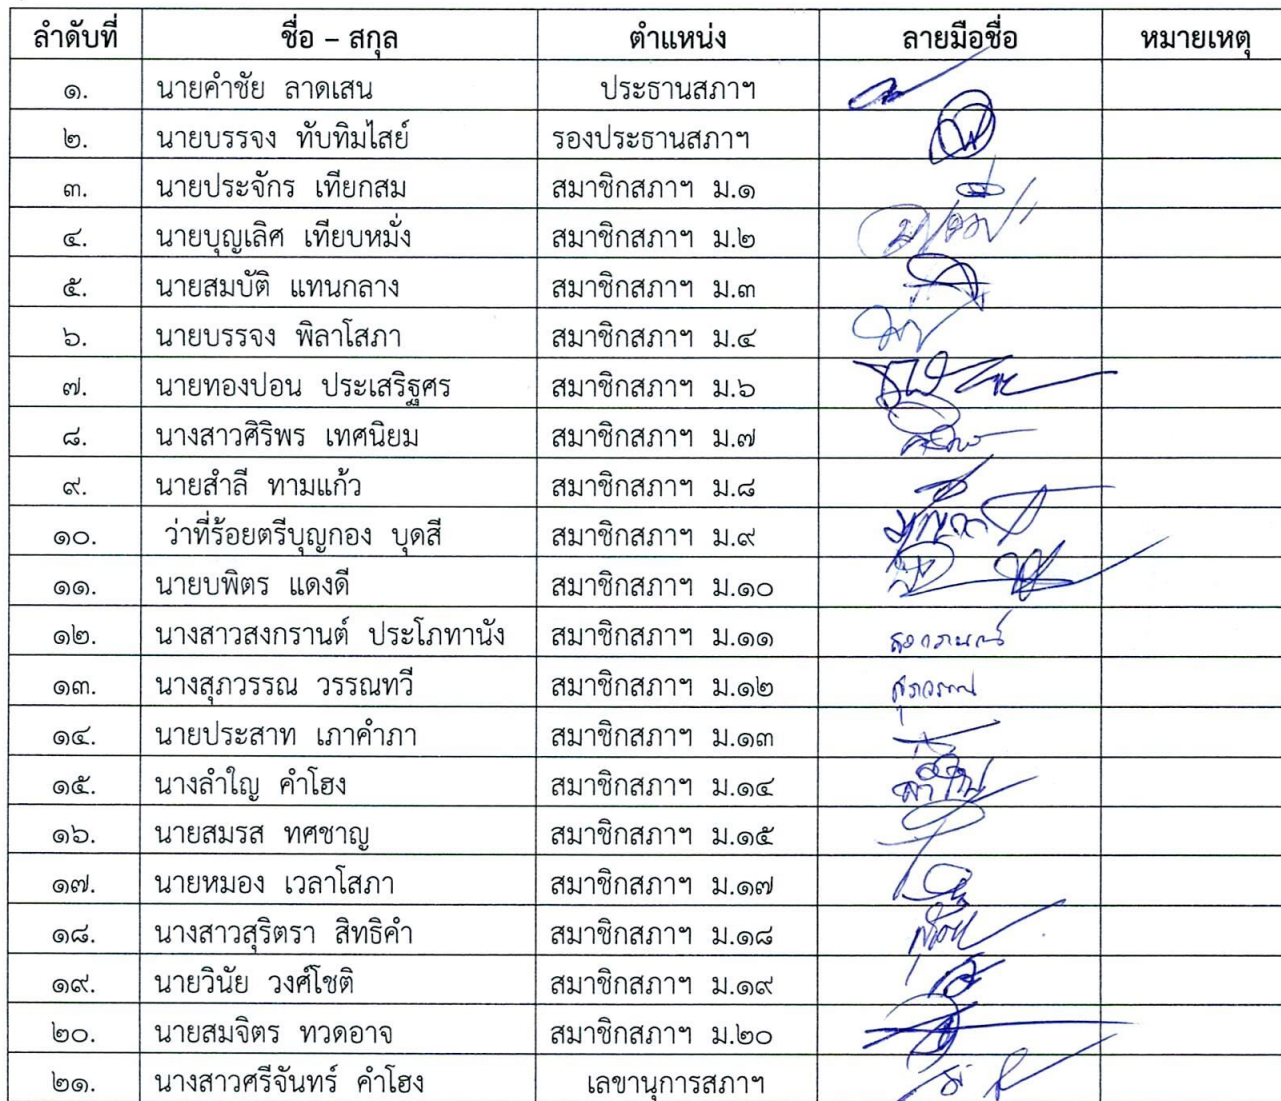 ลำดับที่ ชื่อ – สกุล ตำแหน่ง ลายมือชื่อ หมายเหตุ
๑. นายคำชัย ลาดเสน ประธานสภาฯ
๒. นายบรรจง ทับทิมไสย์ รองประธานสภาฯ
๓. นายประจักร เทียกสม สมาชิกสภาฯ ม.๑
๔. นายบุญเลิศ เทียบหมั่ง สมาชิกสภาฯ ม.๒
๕. นายสมบัติ แทนกลาง สมาชิกสภาฯ ม.๓
๖. นายบรรจง พิลาโสภา สมาชิกสภาฯ ม.๔
๗. นายทองปอน ประเสริฐศร สมาชิกสภาฯ ม.๖
๘. นางสาวศิริพร เทศนิยม สมาชิกสภาฯ ม.๗
๙. นายสำลี ทามแก้ว สมาชิกสภาฯ ม.๘
๑๐. ว่าที่ร้อยตรีบุญกอง บุดสี สมาชิกสภาฯ ม.๙
๑๑. นายบพิตร แดงดี สมาชิกสภาฯ ม.๑๐
๑๒. นางสาวสงกรานต์ ประโภทานัง สมาชิกสภาฯ ม.๑๑
๑๓. นางสุภวรรณ วรรณทวี สมาชิกสภาฯ ม.๑๒ สุภวรรณ
๑๔. นายประสาท เภาคำภา สมาชิกสภาฯ ม.๑๓
๑๕. นางลำใญ คำโฮง สมาชิกสภาฯ ม.๑๔
๑๖. นายสมรส ทศชาญ สมาชิกสภาฯ ม.๑๕
๑๗. นายหมอง เวลาโสภา สมาชิกสภาฯ ม.๑๗
๑๘. นางสาวสุริตรา สิทธิคำ สมาชิกสภาฯ ม.๑๘
๑๙. นายวินัย วงศ์โชติ สมาชิกสภาฯ ม.๑๙
๒๐. นายสมจิตร ทวดอาจ สมาชิกสภาฯ ม.๒๐
๒๑. นางสาวศรีจันทร์ คำโฮง เลขานุการสภาฯ